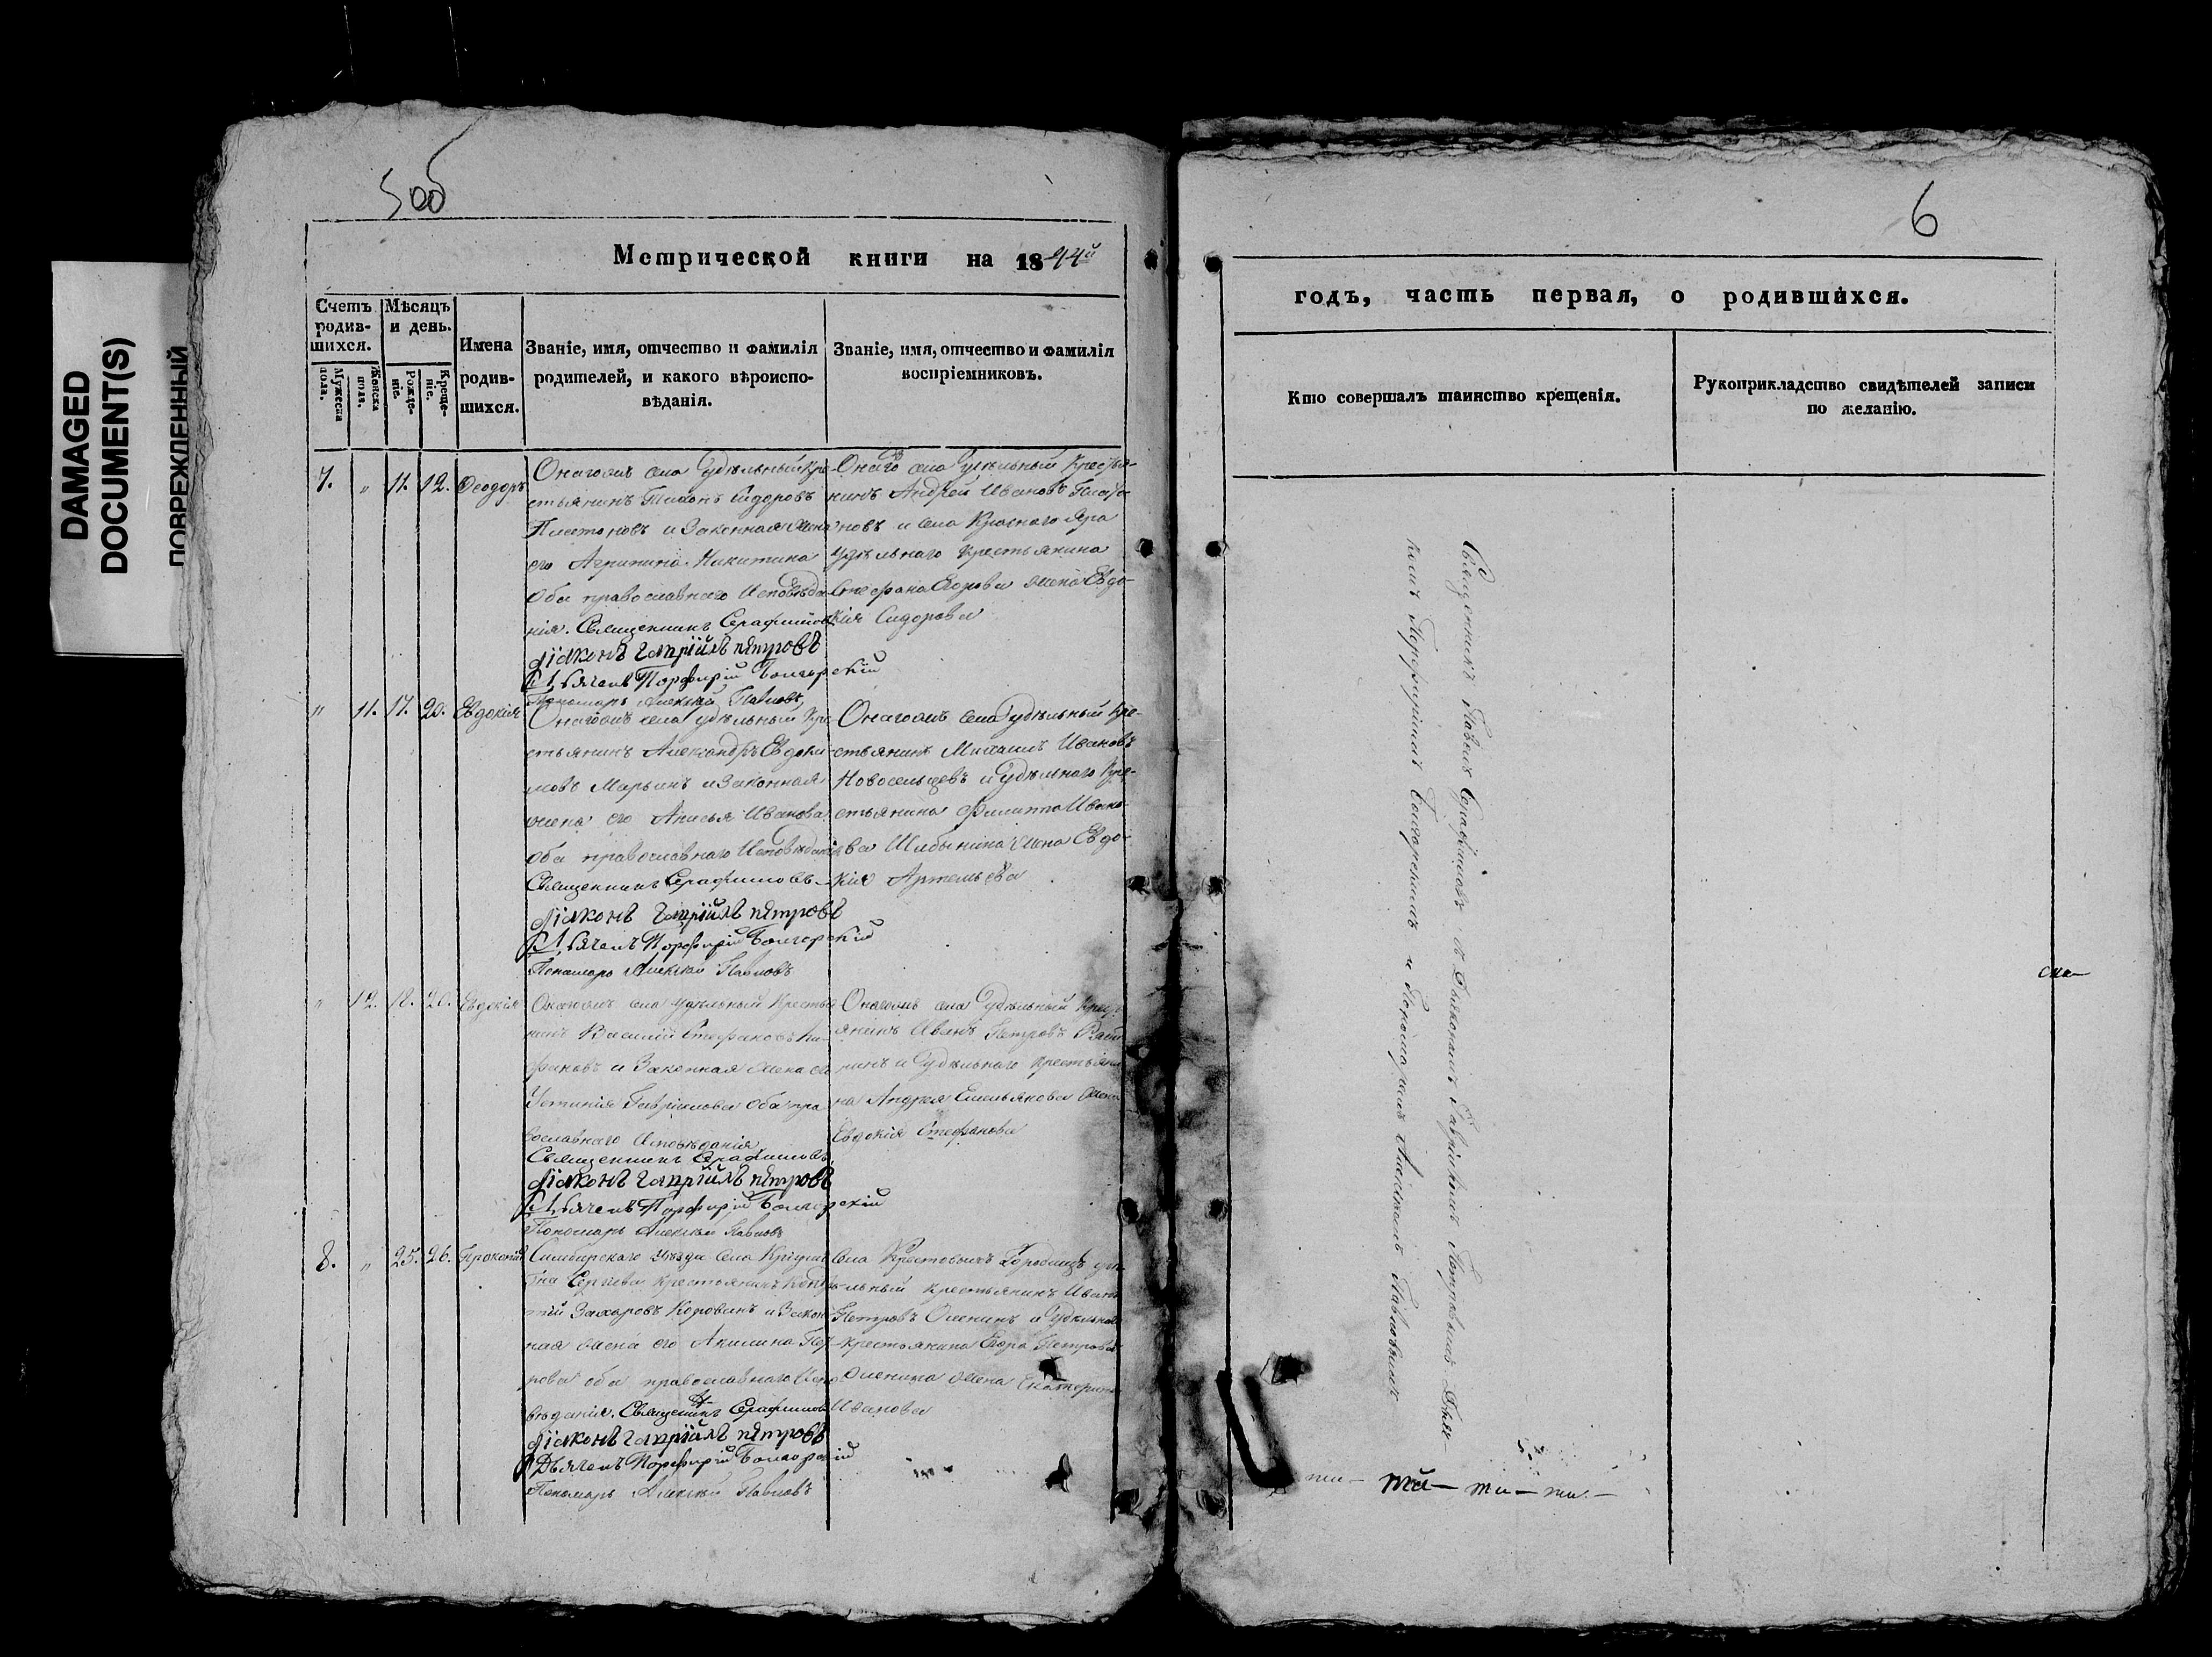 DAMAGED
DOCUMENT(S)
ПОВРЕЖДЕННЫЙ
5об
Метрической книги на 1844й
Счетъ родив-шихся.
Мѣсяцъ и день.
Мужеска пола.
Женска пола.
Рожде-ніе.
Креще-ніе.
Имена родив-шихся.
Званіе, имя, отчество и фамилія
родителей, и какого вѣроиспо-
вѣданія.
Званіе, имя, отчество и фамилія
воспріемниковъ.
7. " 11. 12. Ѳеодоръ
Онагожъ села удѣльный кре-
стьянинъ Тихонъ Сидоровъ
Платоновъ и Законная жена
его Агрипина Никитина
Оба православнаго Исповѣда-
нія. Священникъ Серафимовъ
Діаконъ Гавріилъ Петровъ
Дьячекъ Порфирій
Пономарь Алексѣй Павловъ
Онаго села Удѣльный Крестья-
нинъ Андрей Ивановъ Плато-
новъ и села Краснаго Яра
удѣльнаго крестьянина
Стефана Егорова жена Евдо-
кія Сидорова
" 11. 17. 20. Евдокія
Онагожъ села удѣльный кре-
стьянинъ Александръ Евдоки-
мовъ Марьинъ и Законная
жена его Анисья Иванова
оба православнаго Исповѣданія
Священникъ Серафимовъ
Діаконъ Гавріилъ Петровъ
Дьячекъ Порфирій
Пономарь Алексѣй Павловъ
Онагожъ села Удѣльный Кре-
стьянинъ Михаилъ Ивановъ
Новосельцевъ и Удѣльнаго Кре-
стьянина Филипа Ивано-
ва жена Евдо-
кія Артемьева
" 12. 18. 20. Евдокія
Онагожъ села удѣльный Крестья
нинъ Василій Стефановъ
и Законная жена его
Устинія Гавріилова Оба пра
вославнаго Исповѣданія
Священникъ Серафимовъ
Діаконъ Гавріилъ Петровъ
Дьячекъ Порфирій
Пономарь Алексѣй Павловъ
Онагожъ села Удѣльный Крест
янинъ Иванъ Петровъ
и Удѣльнаго Крестьяни
на Андрея Емельянова жена
Евдокія Стефанова
8. " 25. 26. Прокопій
Симбирскаго уѣзда села
Сергѣева крестьянинъ
Захаровъ Корованъ и Закон
ная жена его Акилина
оба православнаго Испо
вѣданія. Священникъ Серафимовъ
Діаконъ Гавріилъ Петровъ
Дьячекъ Порфирій
Пономарь Алексѣй Павловъ
Села Крестовыхъ Городищъ удѣ
льный крестьянинъ Иванъ
Петровъ Оленинъ и Удѣльнаго
крестьянина Егора Петрова
Оленина жена Екатерина
Иванова
6
годъ, часть первая, о родившихся.
Кто совершалъ таинство крещенія.
Рукоприкладство свидѣтелей записи
по желанію.
Священникъ Павелъ Серафимовъ съ Діакономъ Гавріиломъ Петровымъ Дьяч-
комъ Порфиріемъ и Пономаремъ Алексѣемъ Павловымъ
ска—
ти— ти— ти— ти.—